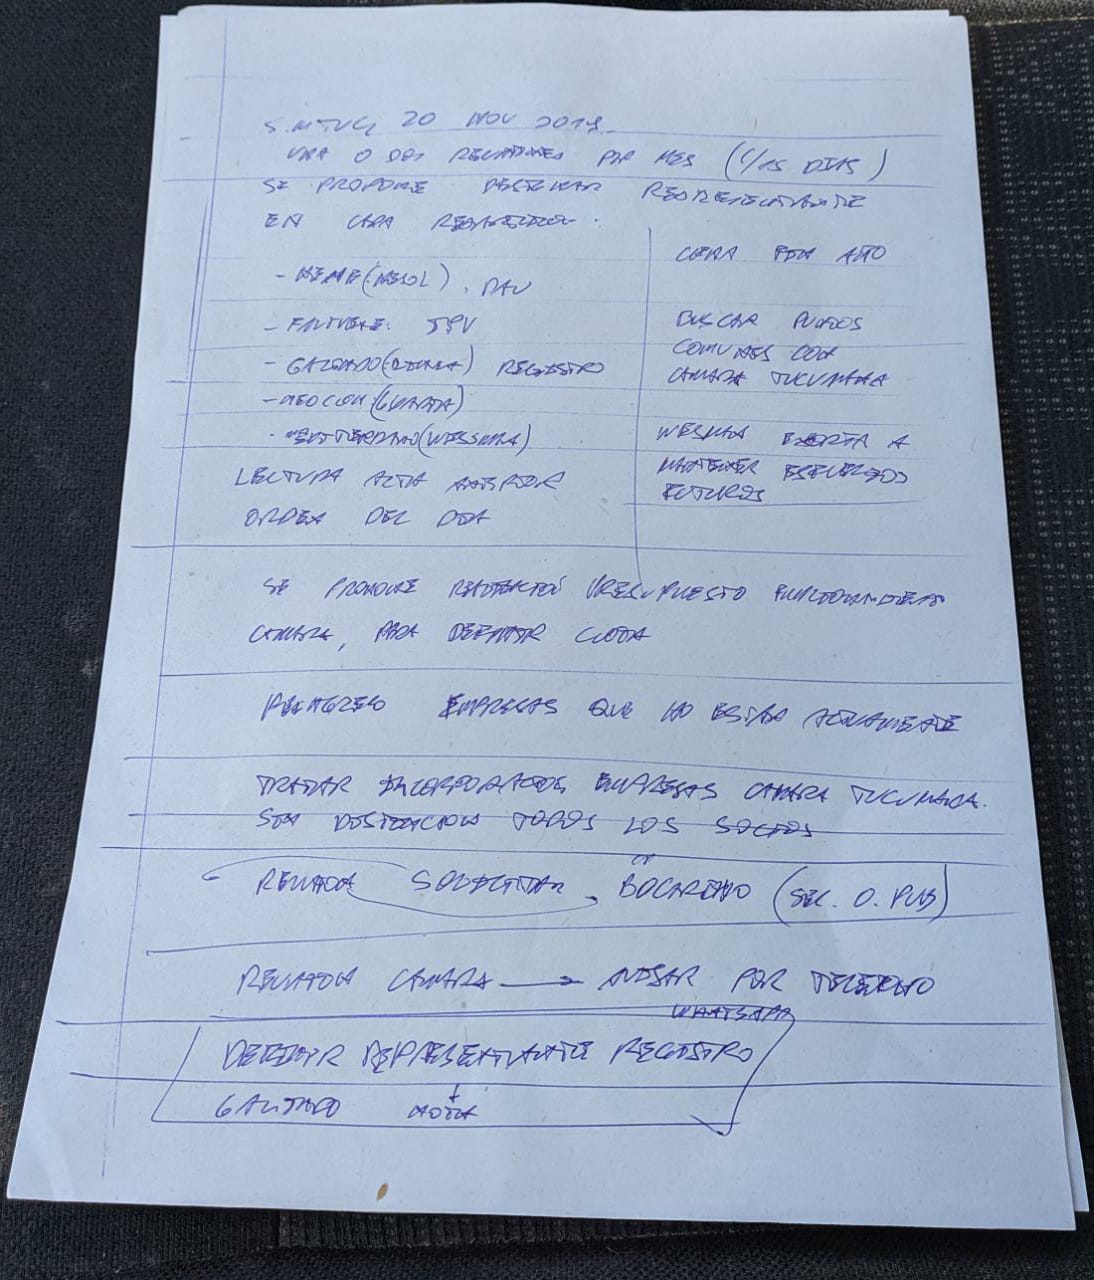 S.M.TUC, 20 NOV 2019
UNA O DOS REUNIONES POR MES (C/15 DIAS)
SE PROPONE DESIGNAR REPRESENTANTE
EN CADA REPARTICION.
- (MESOL). DAU
- JPV
- GALINDO () REGISTRO
- NEOCON ()
- (MESSINA)
LECTURA ACTA ANTERIOR
ORDEN DEL DIA
CENA FIN AÑO
BUSCAR PUNTOS
COMUNES CON
CAMARA TUCUMANA
MESINA EXORTA A
MANTENER ESFUERZOS
FUTUROS
SE PROPONE REDACCIÓN PRESUPUESTO FUNCIONAMIENTO
CAMARA, PARA DEFINIR CUOTA
REINGRESO EMPRESAS QUE NO ESTAN ACTUALMENTE
TRATAR INCORPORACION EMPRESAS CAMARA TUCUMANA.
SIN DISTINCION TODOS LOS SOCIOS
REUNION SOLICITAR BOCARINO (SEC. O. PUB)
REUNION CAMARA → AVISAR POR TELEFONO
WHATSAPP
DEFINIR REPRESENTANTE REGISTRO
GALINDO NOTA